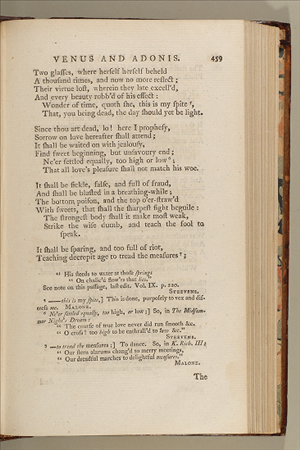 VENUS AND ADONIS. 459
Two glasses, where herself herself beheld
A thousand times, and now no more reflect;
Their virtue lost, wherein they late excell'd,
And every beauty robb'd of his effect:
Wonder of time, quoth she, this is my spite ⁷,
That, you being dead, the day should yet be light.
Since thou art dead, lo! here I prophesy,
Sorrow on love hereafter shall attend;
It shall be waited on with jealousy,
Find sweet beginning, but unsavoury end;
Ne'er settled equally, too high or low ⁸;
That all love's pleasure shall not match his woe.
It shall be fickle, false, and full of fraud,
And shall be blasted in a breathing-while;
The bottom poison, and the top o'er-straw'd
With sweets, that shall the sharpest sight beguile:
The strongest body shall it make most weak,
Strike the wise dumb, and teach the fool to
speak.
It shall be sparing, and too full of riot,
Teaching decrepit age to tread the measures ⁹;
" His steeds to water at those springs
" On chalic'd flow'rs that lies."
See note on this passage, last edit. Vol. IX. p. 220.
STEEVENS.
⁷ —this is my spite,] This is done, purposely to vex and dis-
tress me. MALONE.
⁸ Ne'er settled equally, too high, or low;] So, in The Midsum-
mer Night's Dream:
" The course of true love never did run smooth &c.
" O cross! too high to be enthrall'd to low &c."
STEEVENS.
⁹ —to tread the measures;] To dance. So, in K. Rich. III:
" Our stern alarums chang'd to merry meetings,
" Our dreadful marches to delightful measures."
MALONE.
The